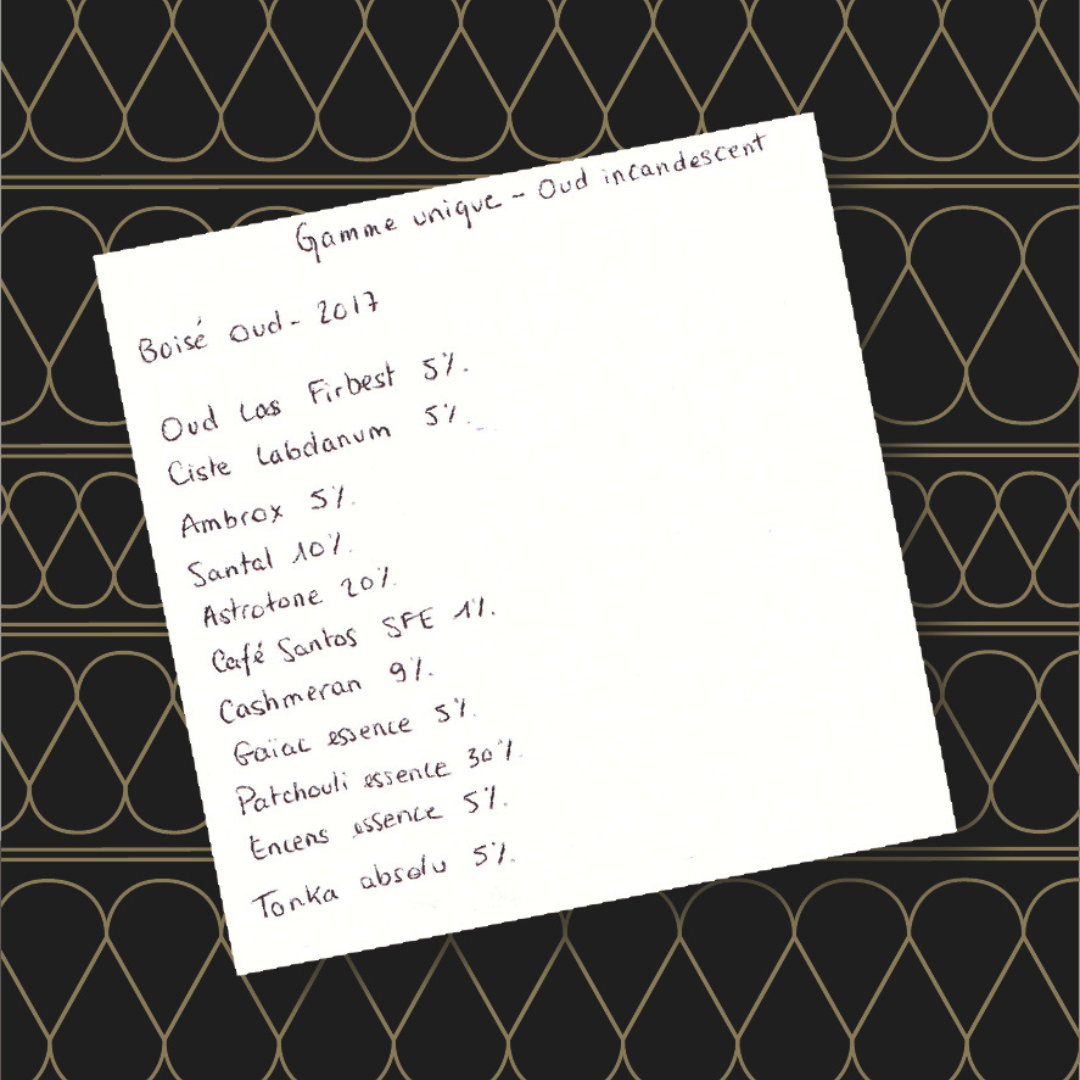 Gamme unique - Oud incandescent
Boisé Oud - 2017
Oud Las Firbest 5%.
Ciste Labdanum 5%.
Ambrox 5%.
Santal 10%.
Astrotone 20%.
Café Santos SFE 1%.
Cashmeran 9%.
Gaïac essence 5%.
Patchouli essence 30%.
Encens essence 5%.
Tonka absolu 5%.